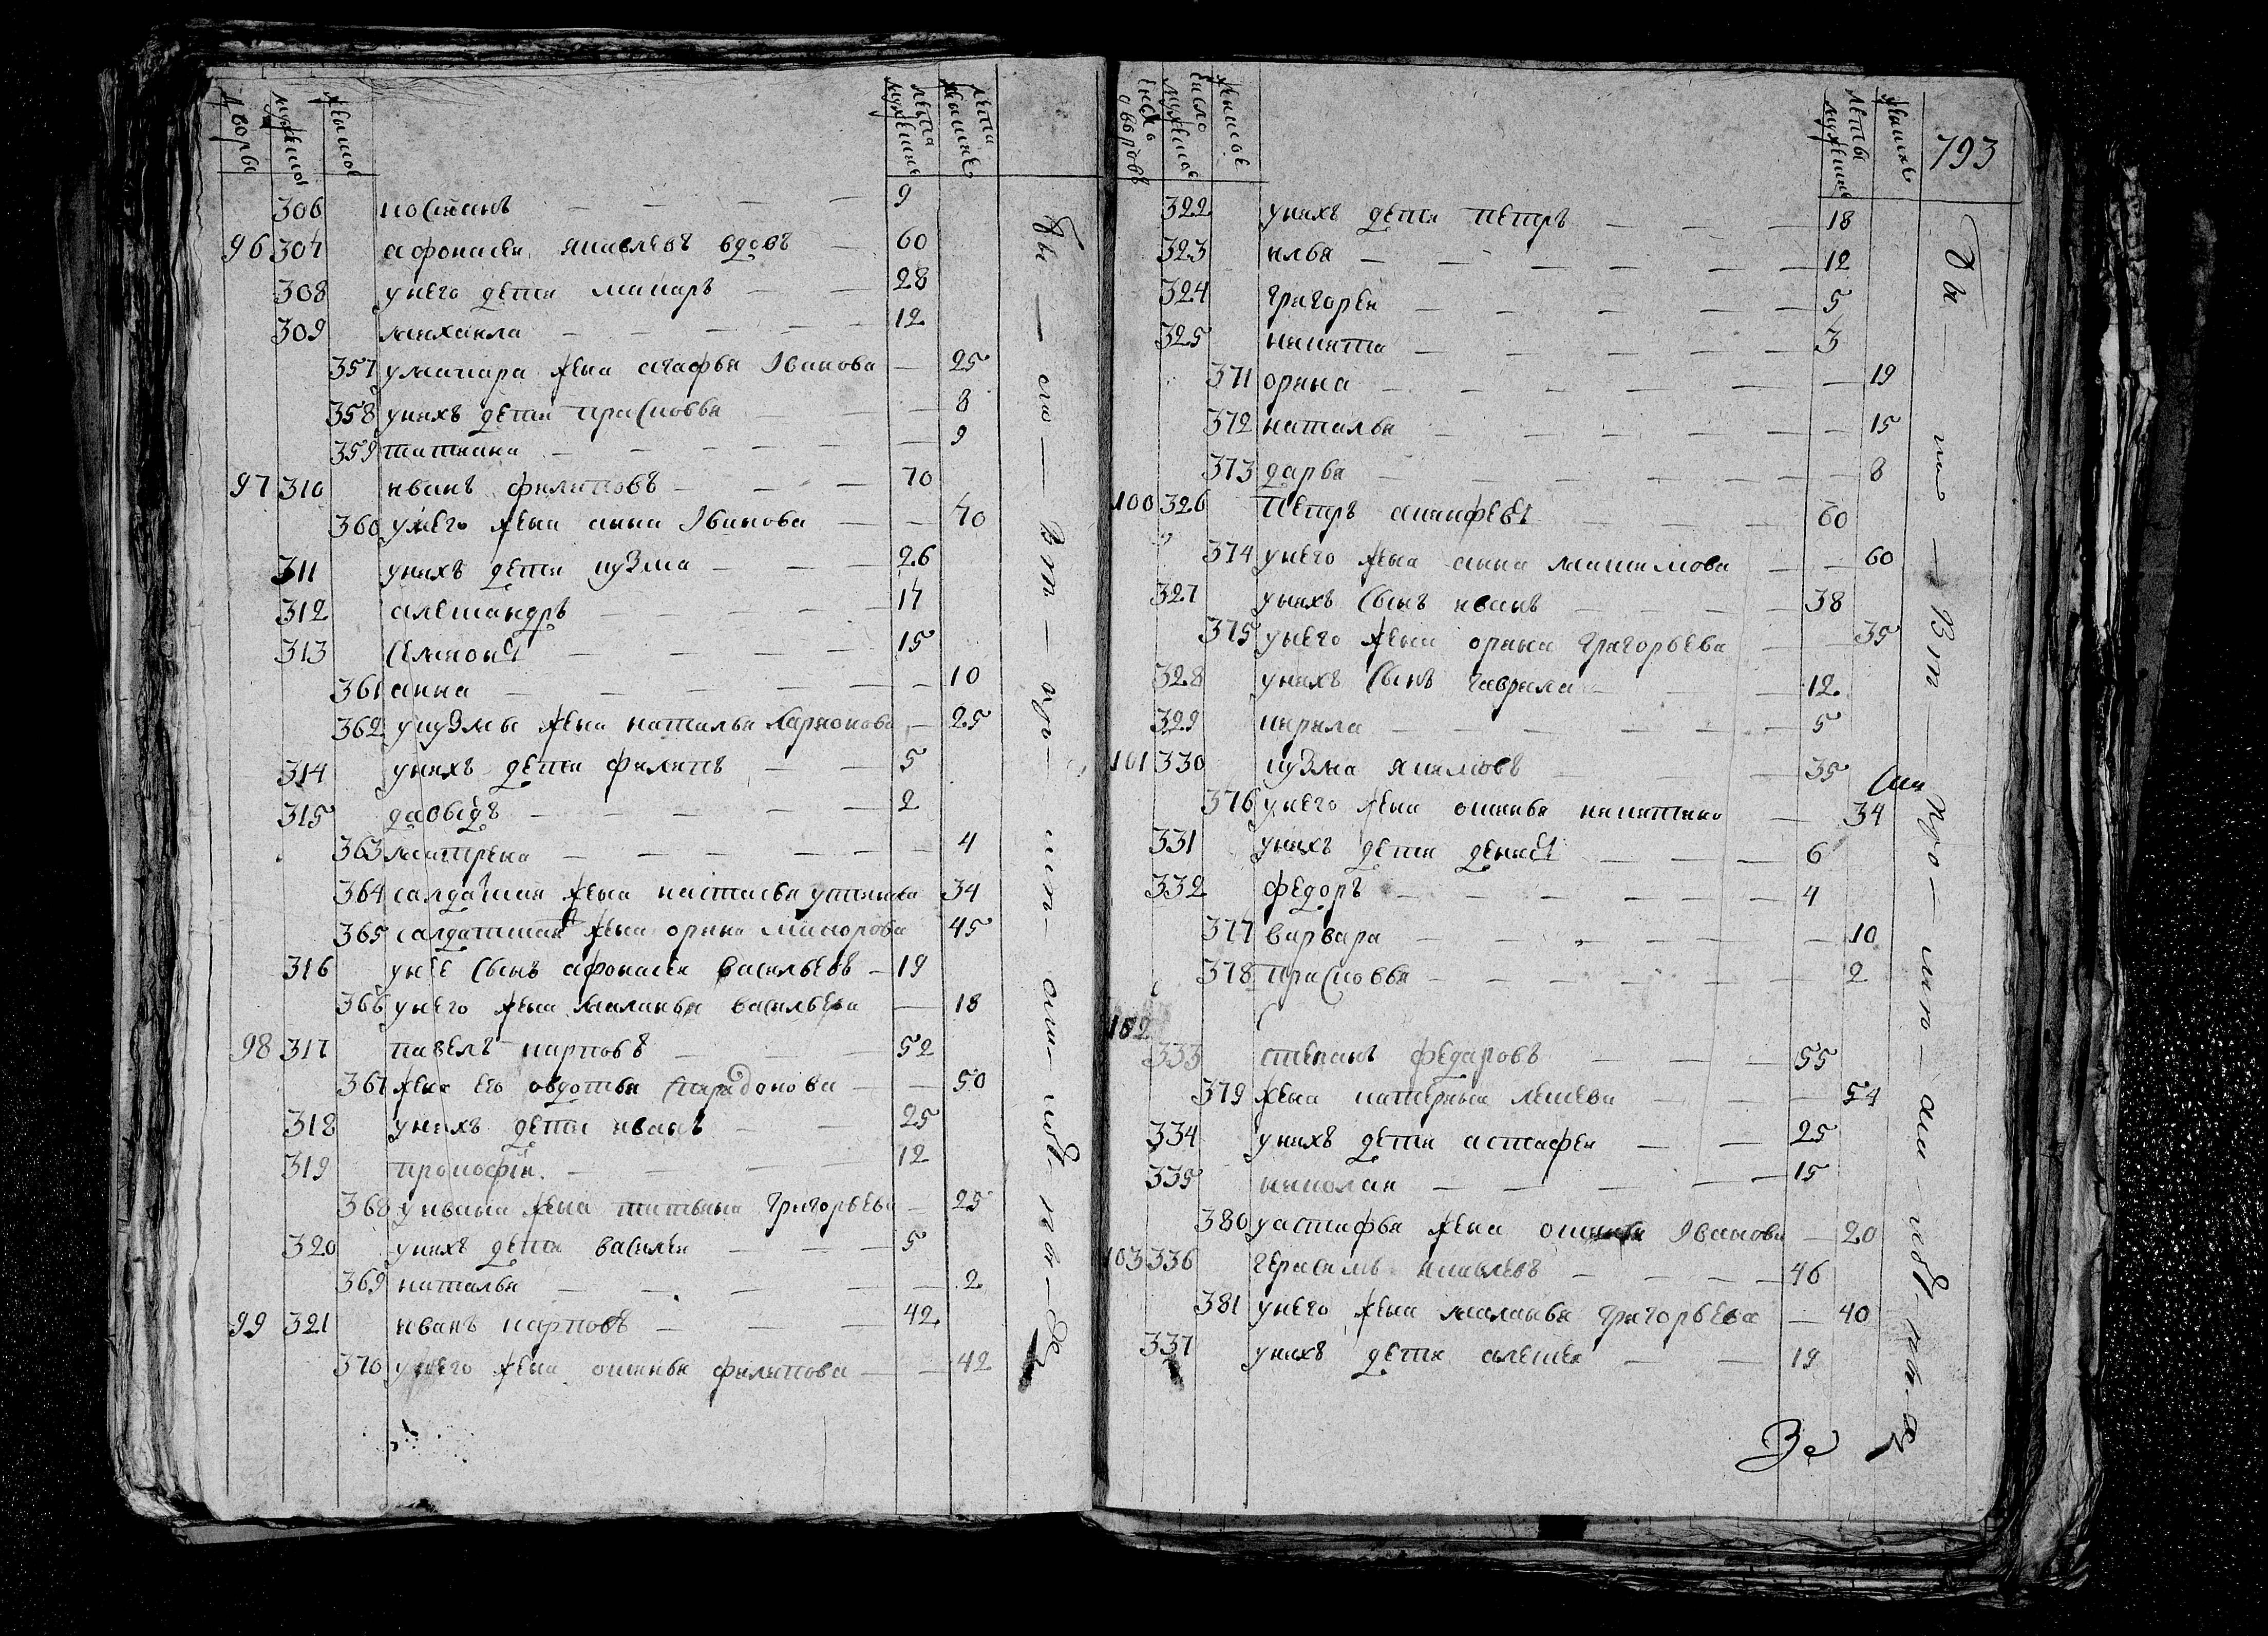 дворы мужеска женска лета мужеские лета женские
306 костянъ 9
96 307 афонасеи яковлевъ вдовъ 60
308 унего дети макаръ 28
309 михаила 12
357 умакара жена агафья Iванова 25
358 унихъ дети прасковья 8
359 татияна 9
97 310 иванъ филиповъ 70
360 унего жена анна Iванова 70
311 унихъ дети кузма 26
312 александръ 17
313 семионъ 15
361 анна 10
362 укузмы жена наталья Ларионова 25
314 унихъ дети филипъ 5
315 давыдъ 2
363 матрена 4
364 салдатская жена настасья устинова 34
365 салдатская жена орина сидорова 45
316 унее сынъ афонасеи васильевъ 19
366 унего жена маланья васильева 18
98 317 павелъ карповъ 52
367 жена его овдотья спиридонова 50
318 унихъ дети иванъ 25
319 прокофеи 12
368 уивана жена татьяна Григорьева 25
320 унихъ дети василеи 5
369 наталья 2
99 321 иванъ карповъ 42
370 унего жена окинья филипова 42
число дворовъ число мужеска женска леты мужеские женские
793
322 унихъ дети петръ 18
323 илья 12
324 григореи 5
325 никита 3
371 орина 19
372 наталья 15
373 дарья 8
100 326 петръ акинфеевъ 60
374 унего жена анна максимова 60
327 унихъ сынъ иванъ 38
375 унего жена орина Григорьева 35
328 унихъ сынъ гаврила 12
329 кирила 5
101 330 кузма якимовъ 35
376 унего жена окинья никитина 34
331 унихъ дети денисъ 6
332 федоръ 4
377 варвара 10
378 прасковья 2
102
333 степанъ федаровъ 55
379 жена катерина 54
334 унихъ дети астафеи 25
335 николаи 15
380 уастафья жена Iванова 20
103 336 герасимъ яковлевъ 46
381 унего жена маланья Григорьева 40
337 унихъ дети алексеи 19